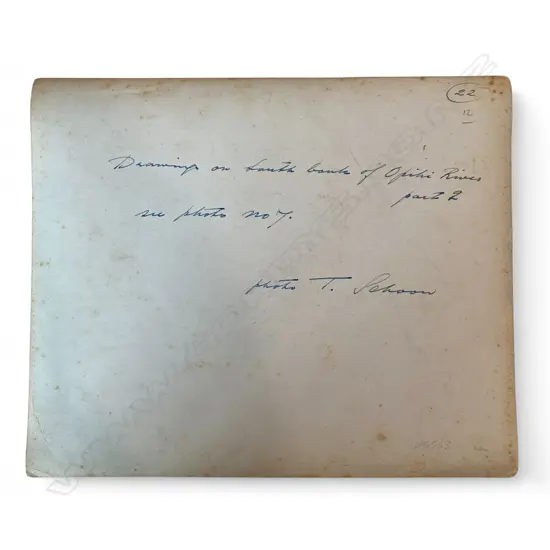 22
12
Drawings on South bank of Opihi River
part 2
see photo no 7.
photo T. Schoon